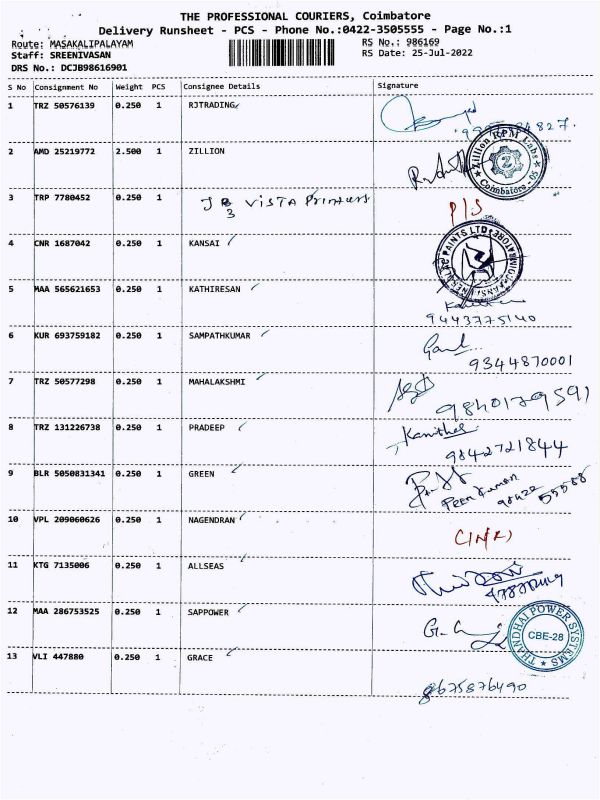 THE PROFESSIONAL COURIERS, Coimbatore
Delivery Runsheet - PCS - Phone No.:0422-3505555 - Page No.:1
Route: MASAKALIPALAYAM RS No.: 986169
Staff: SREENIVASAN RS Date: 25-Jul-2022
DRS No.: DCJB98616901
S No Consignment No Weight PCS Consignee Details Signature
1 TRZ 50576139 0.250 1 RJTRADING
2 AMD 25219772 2.500 1 ZILLION
Zillion RPM Labs
Z
Coimbatore - 05
3 TRP 7780452 0.250 1 VISTA Printers
P/S
4 CNR 1687042 0.250 1 KANSAI
PAINTS LTD
5 MAA 565621653 0.250 1 KATHIRESAN
9443775140
6 KUR 693759182 0.250 1 SAMPATHKUMAR
9344870001
7 TRZ 50577298 0.250 1 MAHALAKSHMI
9840179591
8 TRZ 131226738 0.250 1 PRADEEP
Kanitha
9842721844
9 BLR 5050831341 0.250 1 GREEN
98422 55588
10 VPL 209060626 0.250 1 NAGENDRAN
11 KTG 7135006 0.250 1 ALLSEAS
12 MAA 286753525 0.250 1 SAPPOWER
THANDHAI POWER SYSTEMS
CBE-28
13 VLI 447880 0.250 1 GRACE
8675876490